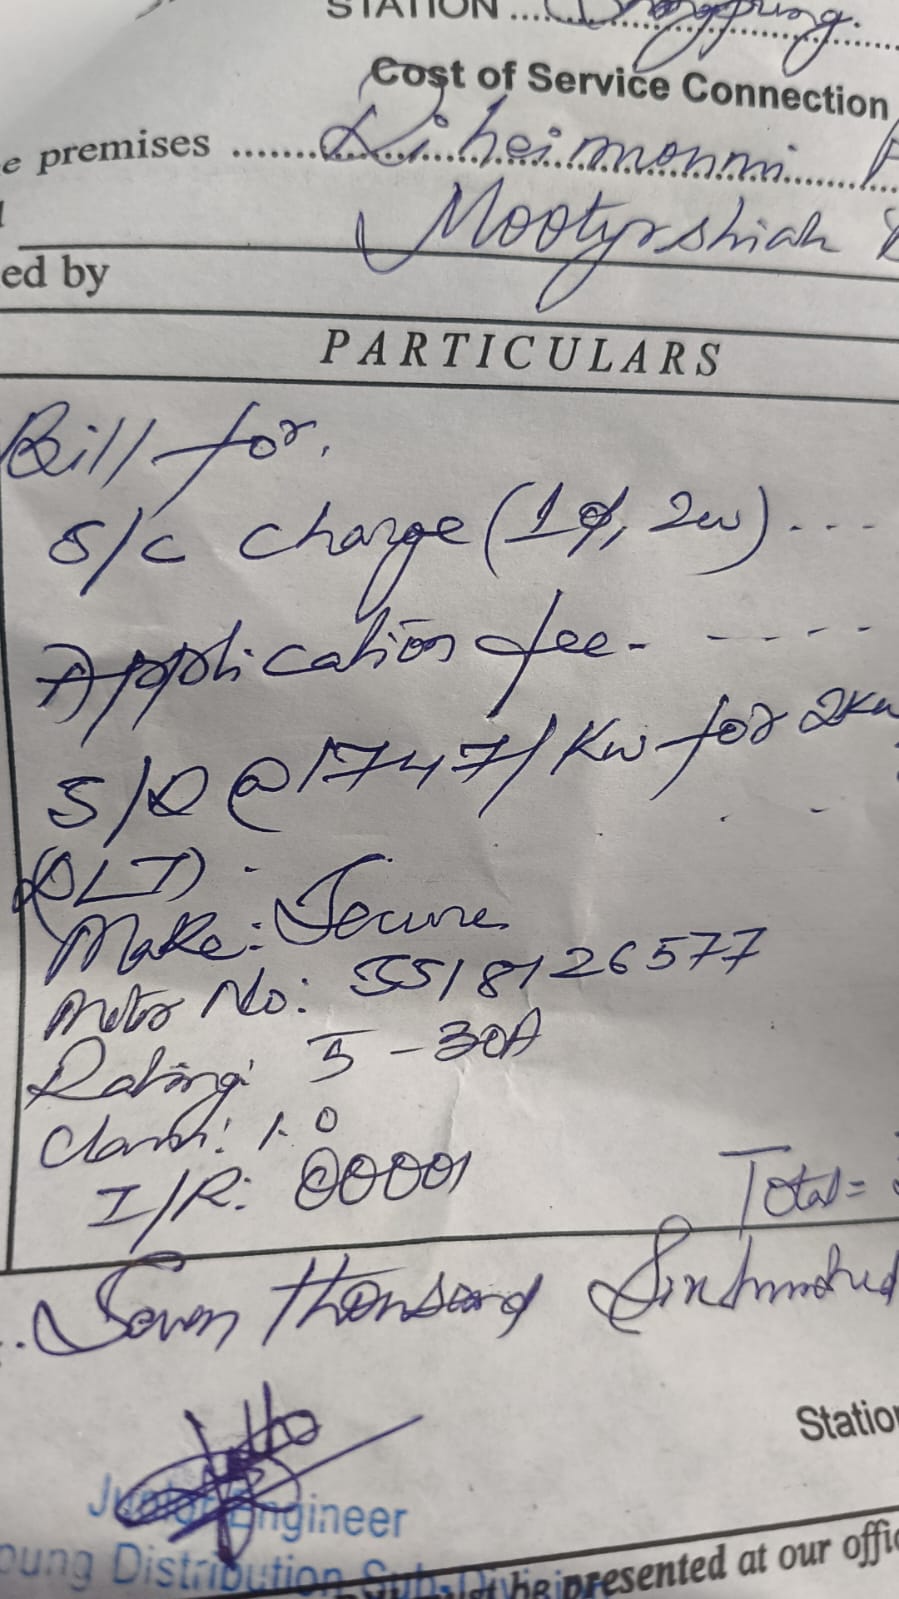 STATION
Cost of Service Connection
e premises ..........
Mootyrshiah
ed by
PARTICULARS
Bill for.
S/C Charge (1φ, 2w) ...
Application fee - - - - -
S/D @ 1747/Kw for 2Kw
(DLT) -
Make: Secure
Meter No: SS18126577
Rating: 5 - 30A
Class: 1.0
I/R: 00001
Total =
Seven thousand Six hundred
Station
Junior Engineer
Distribution Sub-Division
be presented at our offic